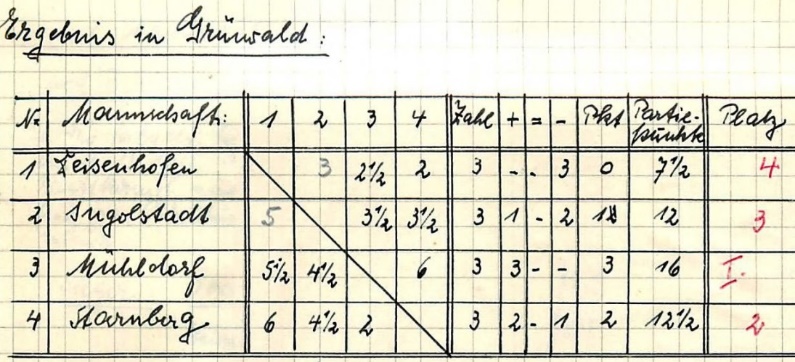 Ergebnis in Grünwald:
Nr Mannschaft: 1 2 3 4 Zahl + = - Pkt Partie-punkte Platz
1 Deisenhofen 3 2 1/2 2 3 - - 3 0 7 1/2 4
2 Ingolstadt 5 3 1/2 3 1/2 3 1 - 2 1 12 3
3 Mühldorf 5 1/2 4 1/2 6 3 3 - - 3 16 I.
4 Starnberg 6 4 1/2 2 3 2 - 1 2 12 1/2 2